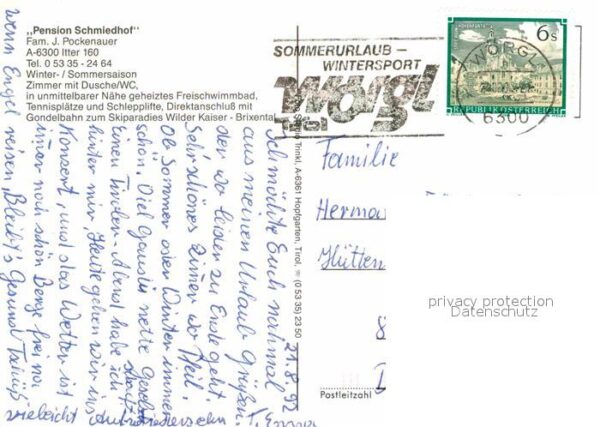 „Pension Schmiedhof"
Fam. J. Pockenauer
A-6300 Itter 160
Tel. 0 53 35 - 24 64
Winter- / Sommersaison
Zimmer mit Dusche/WC,
in unmittelbarer Nähe geheiztes Freischwimmbad,
Tennisplätze und Schlepplifte, Direktanschluß mit
Gondelbahn zum Skiparadies Wilder Kaiser - Brixental
SOMMERURLAUB –
WINTERSPORT
Wörgl
Tirol
6 S
REPUBLIK ÖSTERREICH
WÖRGL
6300
Trinkl, A-6361 Hopfgarten, Tirol, (0 53 35) 23 50
21.8.92
Ich möchte Euch nochmal
aus meinen Urlaub Grüßen.
der wo leider zu Ende geht.
Sehr schönes Zimmer wo
Ob Sommer oder Winter immer
schön. Viel Gaudi nette
Einen Tiroler-Abend habe ich
hinter mir, Heute gehen wir ins
Konzert, und das Wetter ist
immer noch schön Berge frei
wenn Engel reisen, Bleibt's Gesund
vielleicht
Familie
Herma
Hütten
8
D
Postleitzahl
privacy protection
Datenschutz